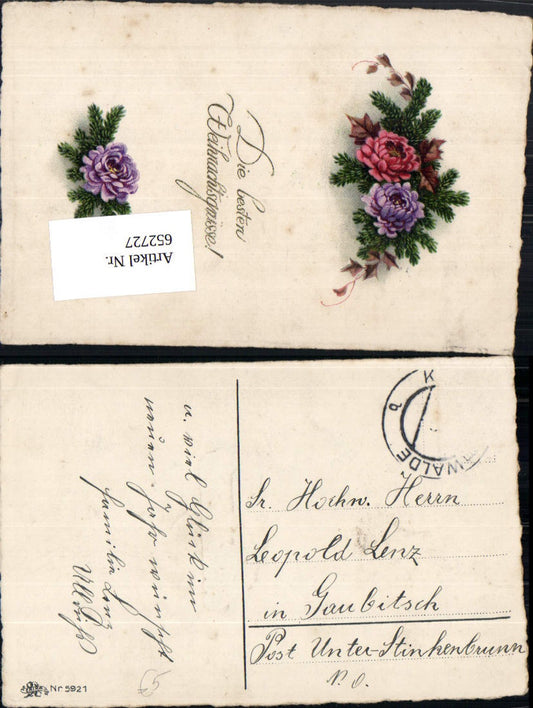 Die besten
Weihnachtsgrüsse!
Artikel Nr.
652727
u. viel Glück im
neuen Jahr wünscht
Familie Lenz
K
WALDE
a
Sr. Hochw. Herrn
Leopold Lenz
in Gaubitsch
Post Unter-Stinkenbrunn
N. Ö.
Nr 5921